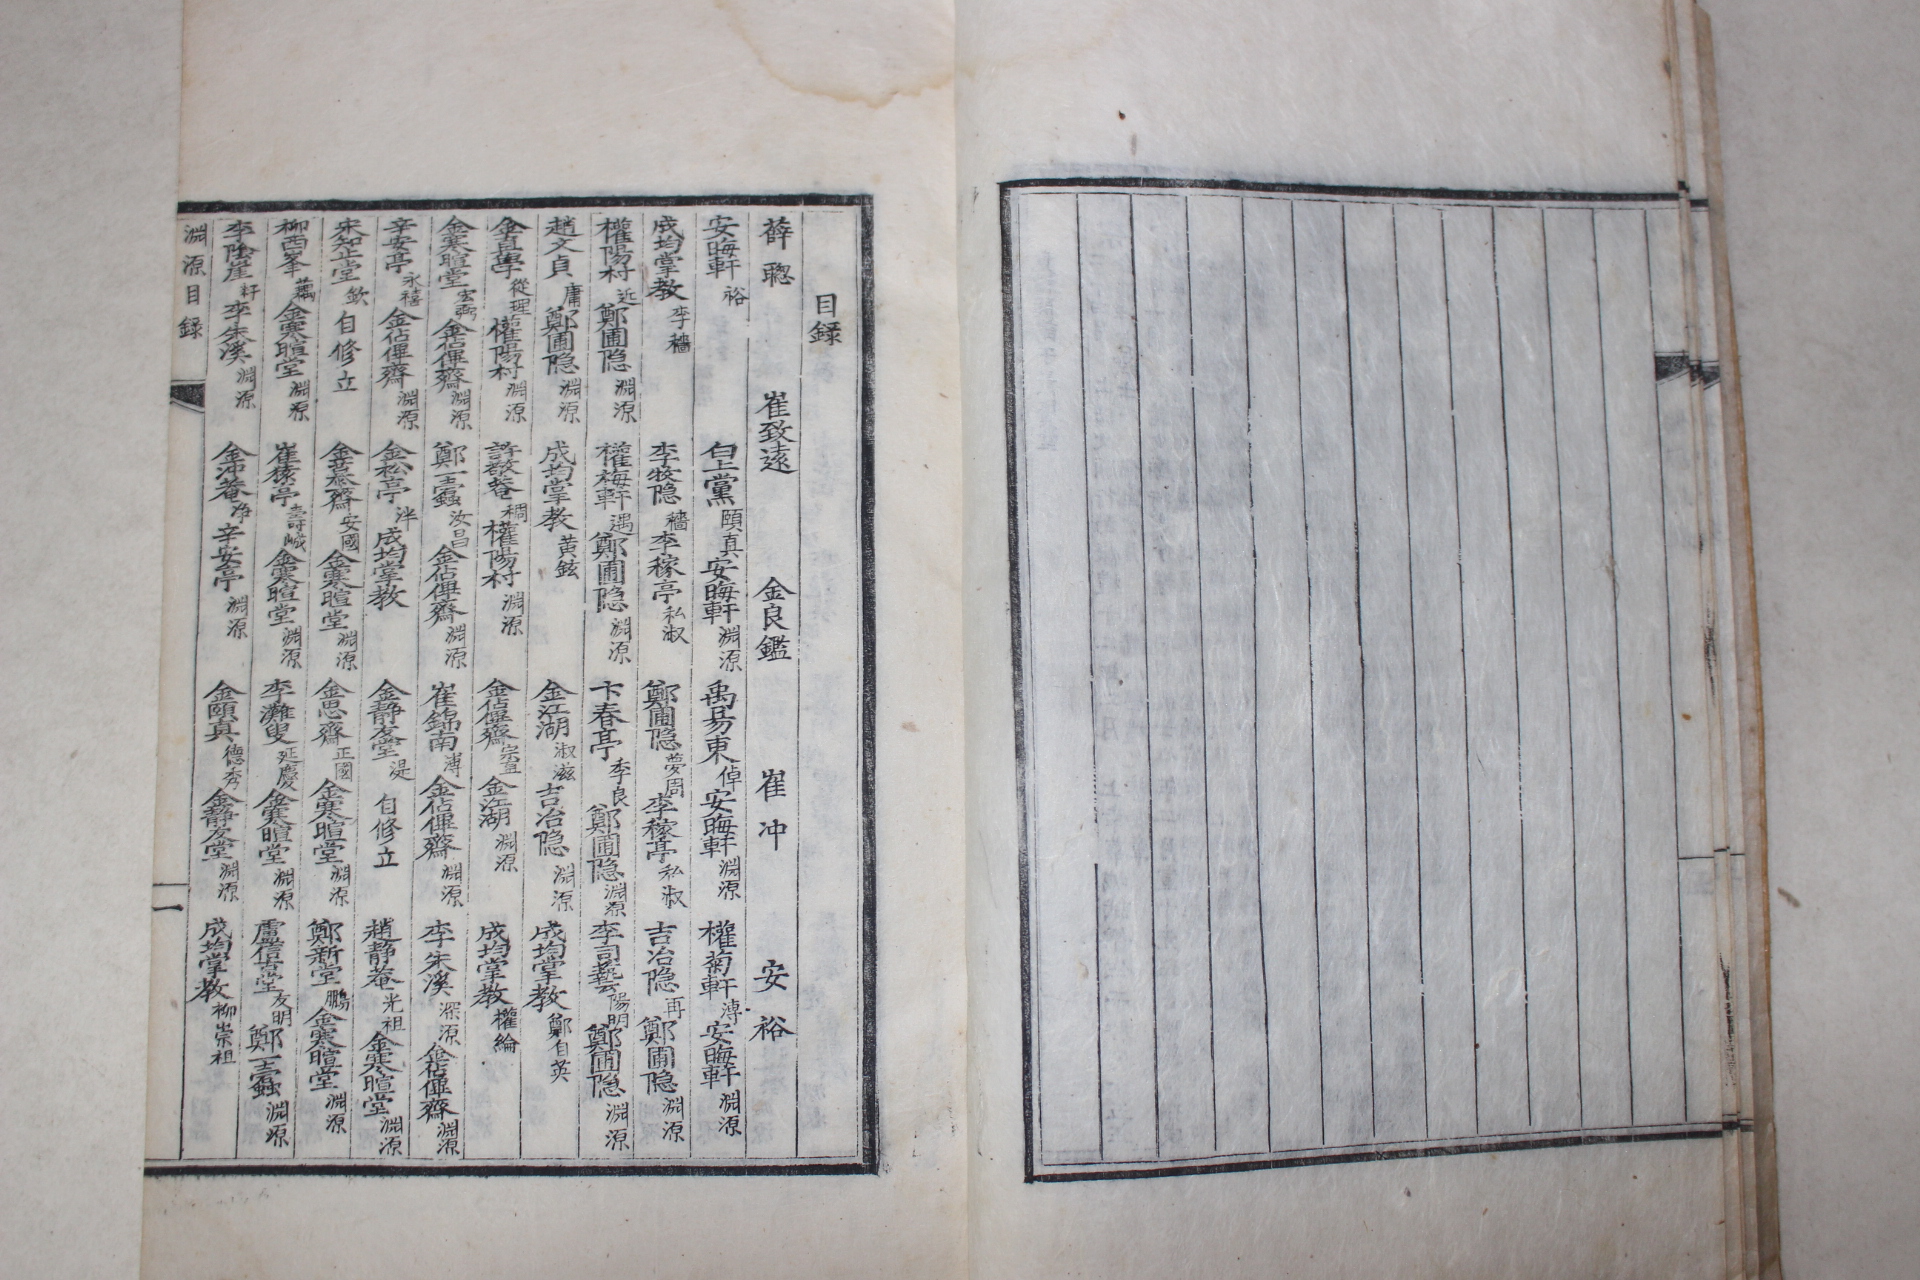 目録
薛聰 崔致遠 金良鑑 崔冲 安裕
安晦軒裕 白上黨頤真安晦軒淵源 禹易東倬安晦軒淵源 權菊軒溥安晦軒淵源
成均掌教李穡 李牧隐穡李稼亭私淑 鄭圃隐夢周李稼亭私淑 吉冶隐再鄭圃隐淵源
權陽村近鄭圃隐淵源 權梅軒遇鄭圃隐淵源 卞春亭季良鄭圃隐淵源 李司藝陽明鄭圃隐淵源
趙文貞庸鄭圃隐淵源 成均掌教黄鉉 金江湖淑滋吉冶隐淵源 成均掌教鄭自英
金直學從理權陽村淵源 許敬菴稠權陽村淵源 金佔僤齋宗直金江湖淵源 成均掌教權綸
金寒暄堂宏弼金佔僤齋淵源 鄭一蠧汝昌金佔僤齋淵源 崔錦南溥金佔僤齋淵源 李朱溪深源金佔僤齋淵源
辛安亭永禧金佔僤齋淵源 金松亭泮成均掌教 金靜友堂湜自修立 趙靜菴光祖金寒暄堂淵源
宋知正堂欽自修立 金慕齋安國金寒暄堂淵源 金思齋正國金寒暄堂淵源 鄭新堂鵬金寒暄堂淵源
柳西峯藕金寒暄堂淵源 崔猿亭壽峸金寒暄堂淵源 李灘叟延慶金寒暄堂淵源 盧信古堂友明鄭一蠧淵源
李陰崖耔李朱溪淵源 金冲菴净辛安亭淵源 金頤真德秀金靜友堂淵源 成均掌教柳崇祖
淵源目録 一